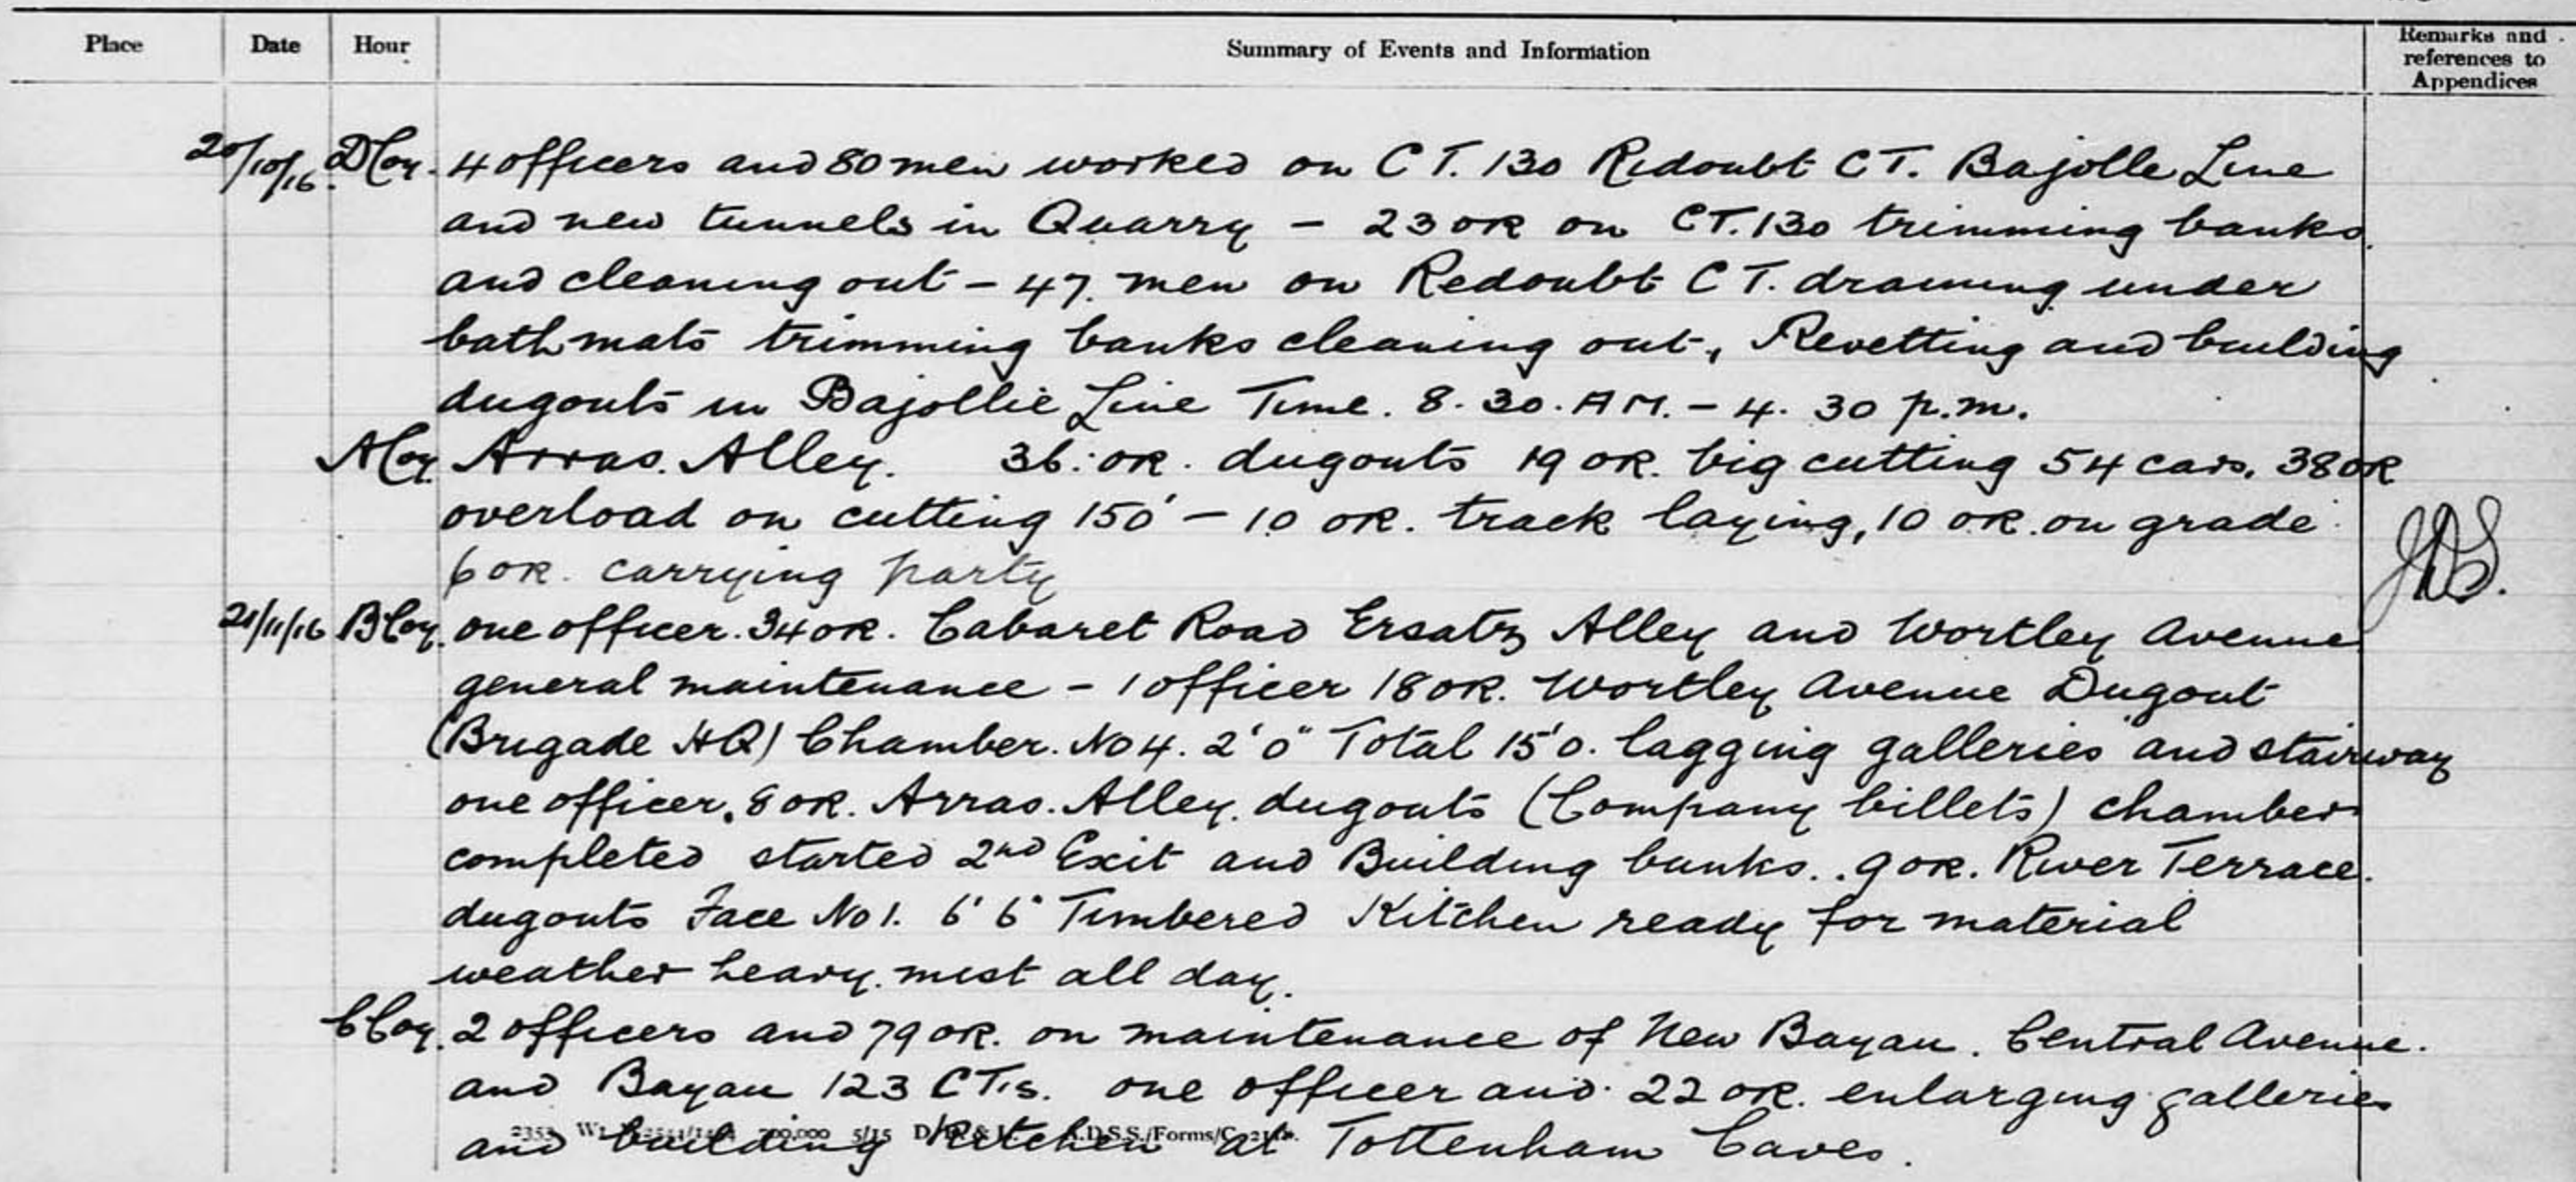 Place Date Hour Summary of Events and Information Remarks and references to Appendices
20/10/16. D Coy. 4 officers and 80 men worked on C T. 130 Redoubt C T. Bajolle Line
and new tunnels in Quarry - 23 OR on CT. 130 trimming banks
and cleaning out - 47. men on Redoubt C T. draining under
bathmats trimming banks cleaning out, Revetting and building
dugouts in Bajollie Line Time. 8.30. AM. - 4. 30 p.m.
A Coy. Arras. Alley. 36. OR. dugouts 19 OR. big cutting 54 cars. 38 OR
overload on cutting 150' - 10 OR. track laying, 10 OR. on grade
6 OR. carrying party
JDS.
21/11/16 B Coy. one officer. 34 OR. Cabaret Road Ersatz Alley and Wortley Avenue
general maintenance - 1 officer 18 OR. Wortley Avenue Dugout
(Brigade HQ) Chamber. No 4. 2' 0" Total 15' 0. lagging galleries and stairway
one officer. 8 OR. Arras. Alley. dugouts (Company billets) chamber
completed started 2nd Exit and Building bunks.. 9 OR. River Terrace.
dugouts Face No 1. 6' 6" Timbered Kitchen ready for material
weather heavy. mist all day.
C Coy. 2 officers and 79 OR. on maintenance of New Bayau. Central Avenue.
and Bayau 123 CTs. one officer and 22 OR. enlarging galleries
and building kitchen at Tottenham Caves.
2353 Wt 700,000 5/15 A.D.S.S./Forms/C.